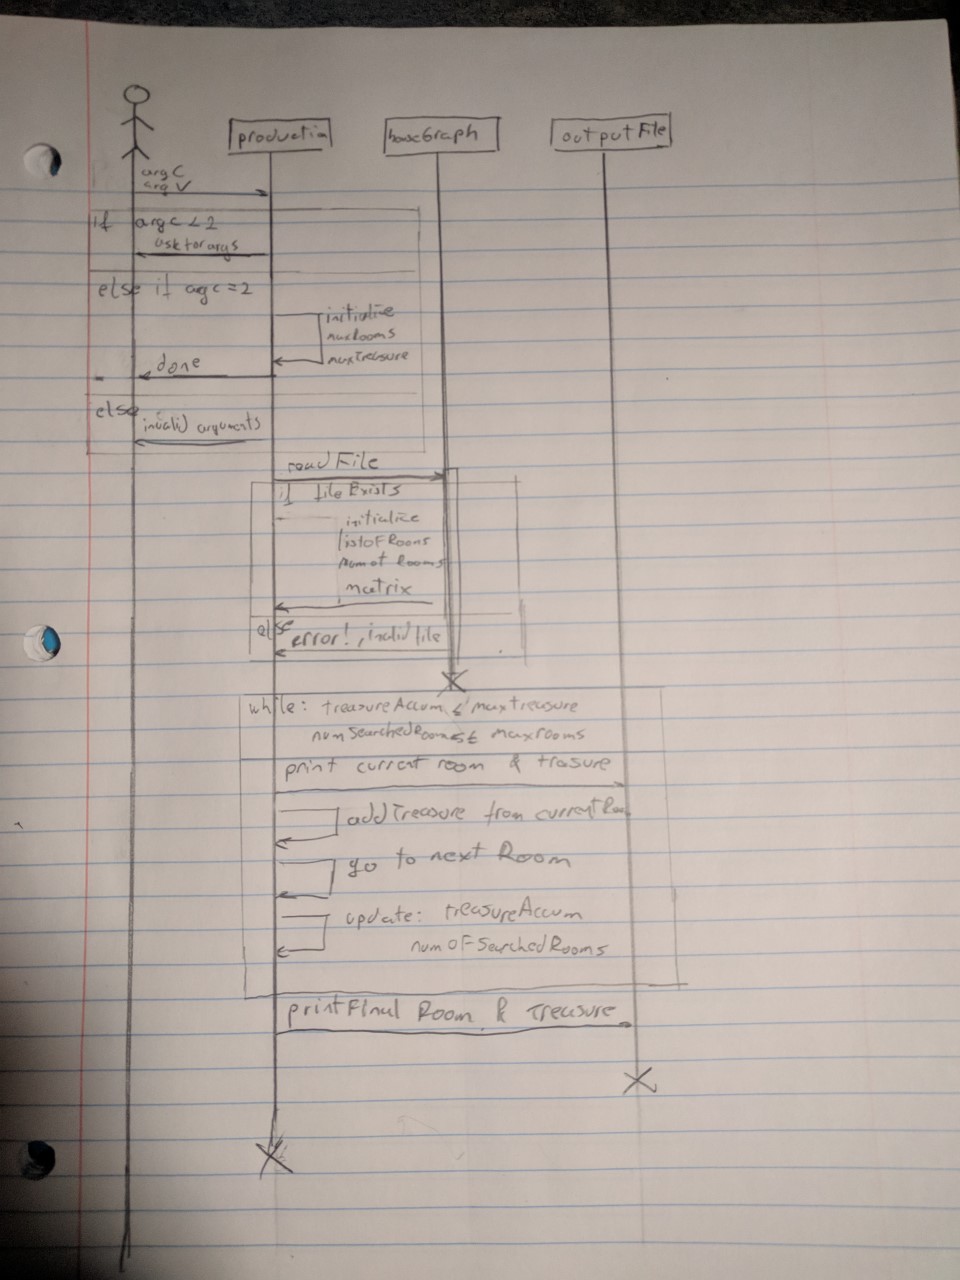 production
houseGraph
outputFile
argC
argV
if argc < 2
ask for args
else if agc = 2
initialize
maxrooms
maxTreasure
done
else
invalid arguments
readFile
if fileExists
initialize
listOfRooms
numof Rooms
matrix
else
error!, invalid file
while: treasureAccum ≤ maxtreasure
numSearchedRooms ≤ maxrooms
print current room & trasure
addTreasure from currentRoom
go to next Room
update: treasureAccum
numOFSearchedRooms
printFInal Room & Treasure